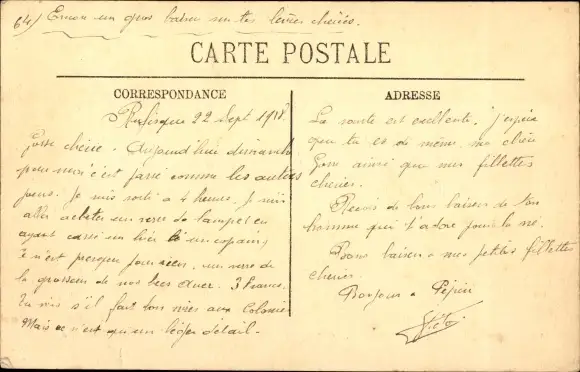 64) Encore un gros baiser sur tes lèvres chéries.
CARTE POSTALE
CORRESPONDANCE
Rufisque 22 Sept 1918.
Gosse chérie. Aujourd'hui dimanche
pour moi c'est farce comme les autres
jours. Je suis sorti a 4 heures. Je suis
aller acheter un verre de lampe en
ayant cassé un hier a un copain,
ce n'est presque pour rien, un verre de
la grosseur de nos becs Auer. 3 francs.
Tu vois s'il fait bon vivre aux Colonies
Mais ce n'est qu'un léger détail.
ADRESSE
La santé est excellente, j'espère
que tu es de même, ma chère
Gosse ainsi que mes fillettes
chéries.
Reçois de bons baisers de ton
homme qui t'adore pour la vie.
Bons baisers a mes petites fillettes
chéries
Bonjour a Pépéri